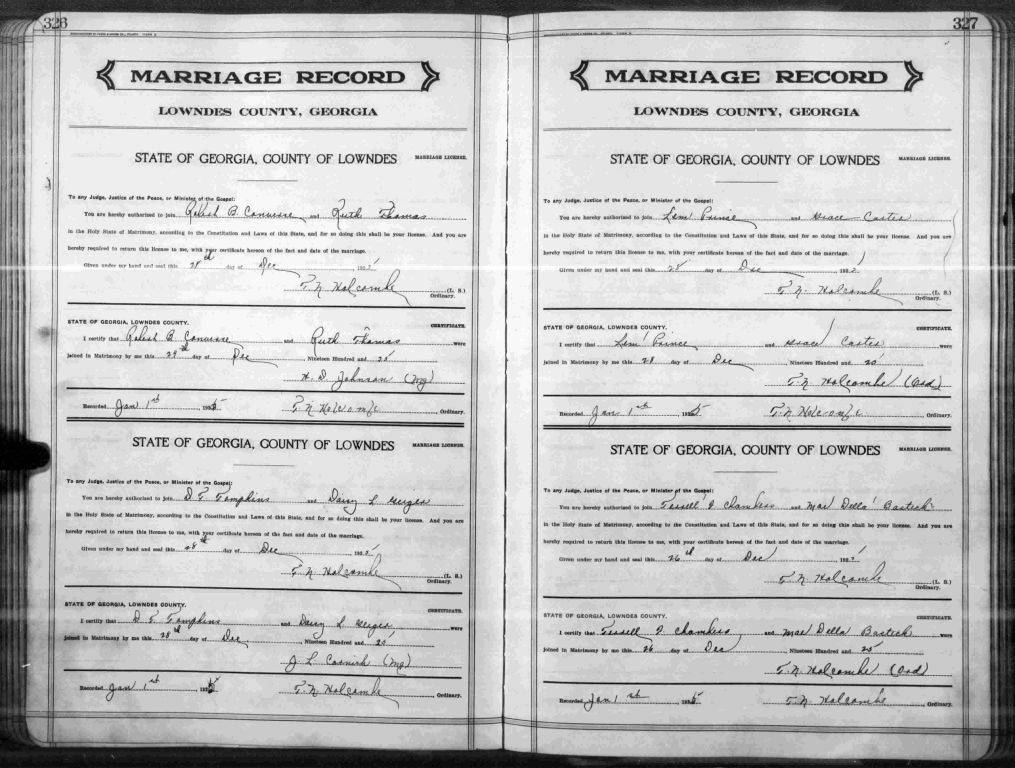 326
MARRIAGE RECORD
LOWNDES COUNTY, GEORGIA
STATE OF GEORGIA, COUNTY OF LOWNDES MARRIAGE LICENSE.
To any Judge, Justice of the Peace, or Minister of the Gospel:
You are hereby authorized to join B. Converse and Ruth Thomas
in the Holy State of Matrimony, according to the Constitution and Laws of this State, and for so doing this shall be your license. And you are
hereby required to return this license to me, with your certificate hereon of the fact and date of the marriage.
Given under my hand and seal this 28th day of Dec 192
T. N. Holcombe (L. S.)
Ordinary.
STATE OF GEORGIA, LOWNDES COUNTY. CERTIFICATE.
I certify that B Converse and Ruth Thomas were
joined in Matrimony by me this 29th day of Dec Nineteen Hundred and 25
H. D. Johnson (Mg)
Recorded Jan 1st, 192 T. N Holcombe, Ordinary.
STATE OF GEORGIA, COUNTY OF LOWNDES MARRIAGE LICENSE.
To any Judge, Justice of the Peace, or Minister of the Gospel:
You are hereby authorized to join D T Tompkins and Daisy L Geiger
in the Holy State of Matrimony, according to the Constitution and Laws of this State, and for so doing this shall be your license. And you are
hereby required to return this license to me, with your certificate hereon of the fact and date of the marriage.
Given under my hand and seal this 28th day of Dec 192
T. N Holcombe (L. S.)
Ordinary.
STATE OF GEORGIA, LOWNDES COUNTY. CERTIFICATE.
I certify that D T Tompkins and Daisy L Geiger were
joined in Matrimony by me this 28th day of Dec Nineteen Hundred and 25
J L (Mg)
Recorded Jan 1st, 192 T. N Holcombe, Ordinary.
327
MARRIAGE RECORD
LOWNDES COUNTY, GEORGIA
STATE OF GEORGIA, COUNTY OF LOWNDES MARRIAGE LICENSE.
To any Judge, Justice of the Peace, or Minister of the Gospel:
You are hereby authorized to join Lem Prince and Grace Carter
in the Holy State of Matrimony, according to the Constitution and Laws of this State, and for so doing this shall be your license. And you are
hereby required to return this license to me, with your certificate hereon of the fact and date of the marriage.
Given under my hand and seal this 28 day of Dec 192
T. N. Holcombe (L. S.)
Ordinary.
STATE OF GEORGIA, LOWNDES COUNTY. CERTIFICATE.
I certify that Lem Prince and Grace Carter were
joined in Matrimony by me this 28 day of Dec, Nineteen Hundred and 25
T. N Holcombe (Ord)
Recorded Jan 1st, 192 T. N Holcombe, Ordinary.
STATE OF GEORGIA, COUNTY OF LOWNDES MARRIAGE LICENSE.
To any Judge, Justice of the Peace, or Minister of the Gospel:
You are hereby authorized to join J Chambers and Mae Della
in the Holy State of Matrimony, according to the Constitution and Laws of this State, and for so doing this shall be your license. And you are
hereby required to return this license to me, with your certificate hereon of the fact and date of the marriage.
Given under my hand and seal this 26th day of Dec 192
T. N Holcombe (L. S.)
Ordinary.
STATE OF GEORGIA, LOWNDES COUNTY. CERTIFICATE.
I certify that J Chambers and Mae Della were
joined in Matrimony by me this 26 day of Dec, Nineteen Hundred and 25
T. N Holcombe (Ord)
Recorded Jan 1st, 192 T. N Holcombe, Ordinary.